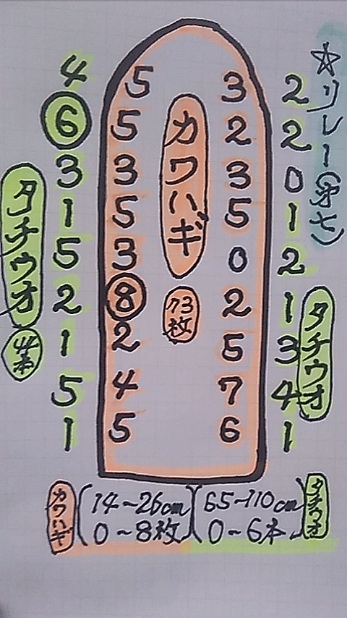 ☆リレー(才七)
4 5 3 2
6 5 2 2
3 3 3 0
1 5 5 1
5 3 0 2
2 8 2 1
1 2 5 3
5 4 7 4
1 5 6 1
カワハギ
73枚
タチウオ
44本
タチウオ
カワハギ (14~26cm) (65~110cm) タチウオ
0~8枚 0~6本